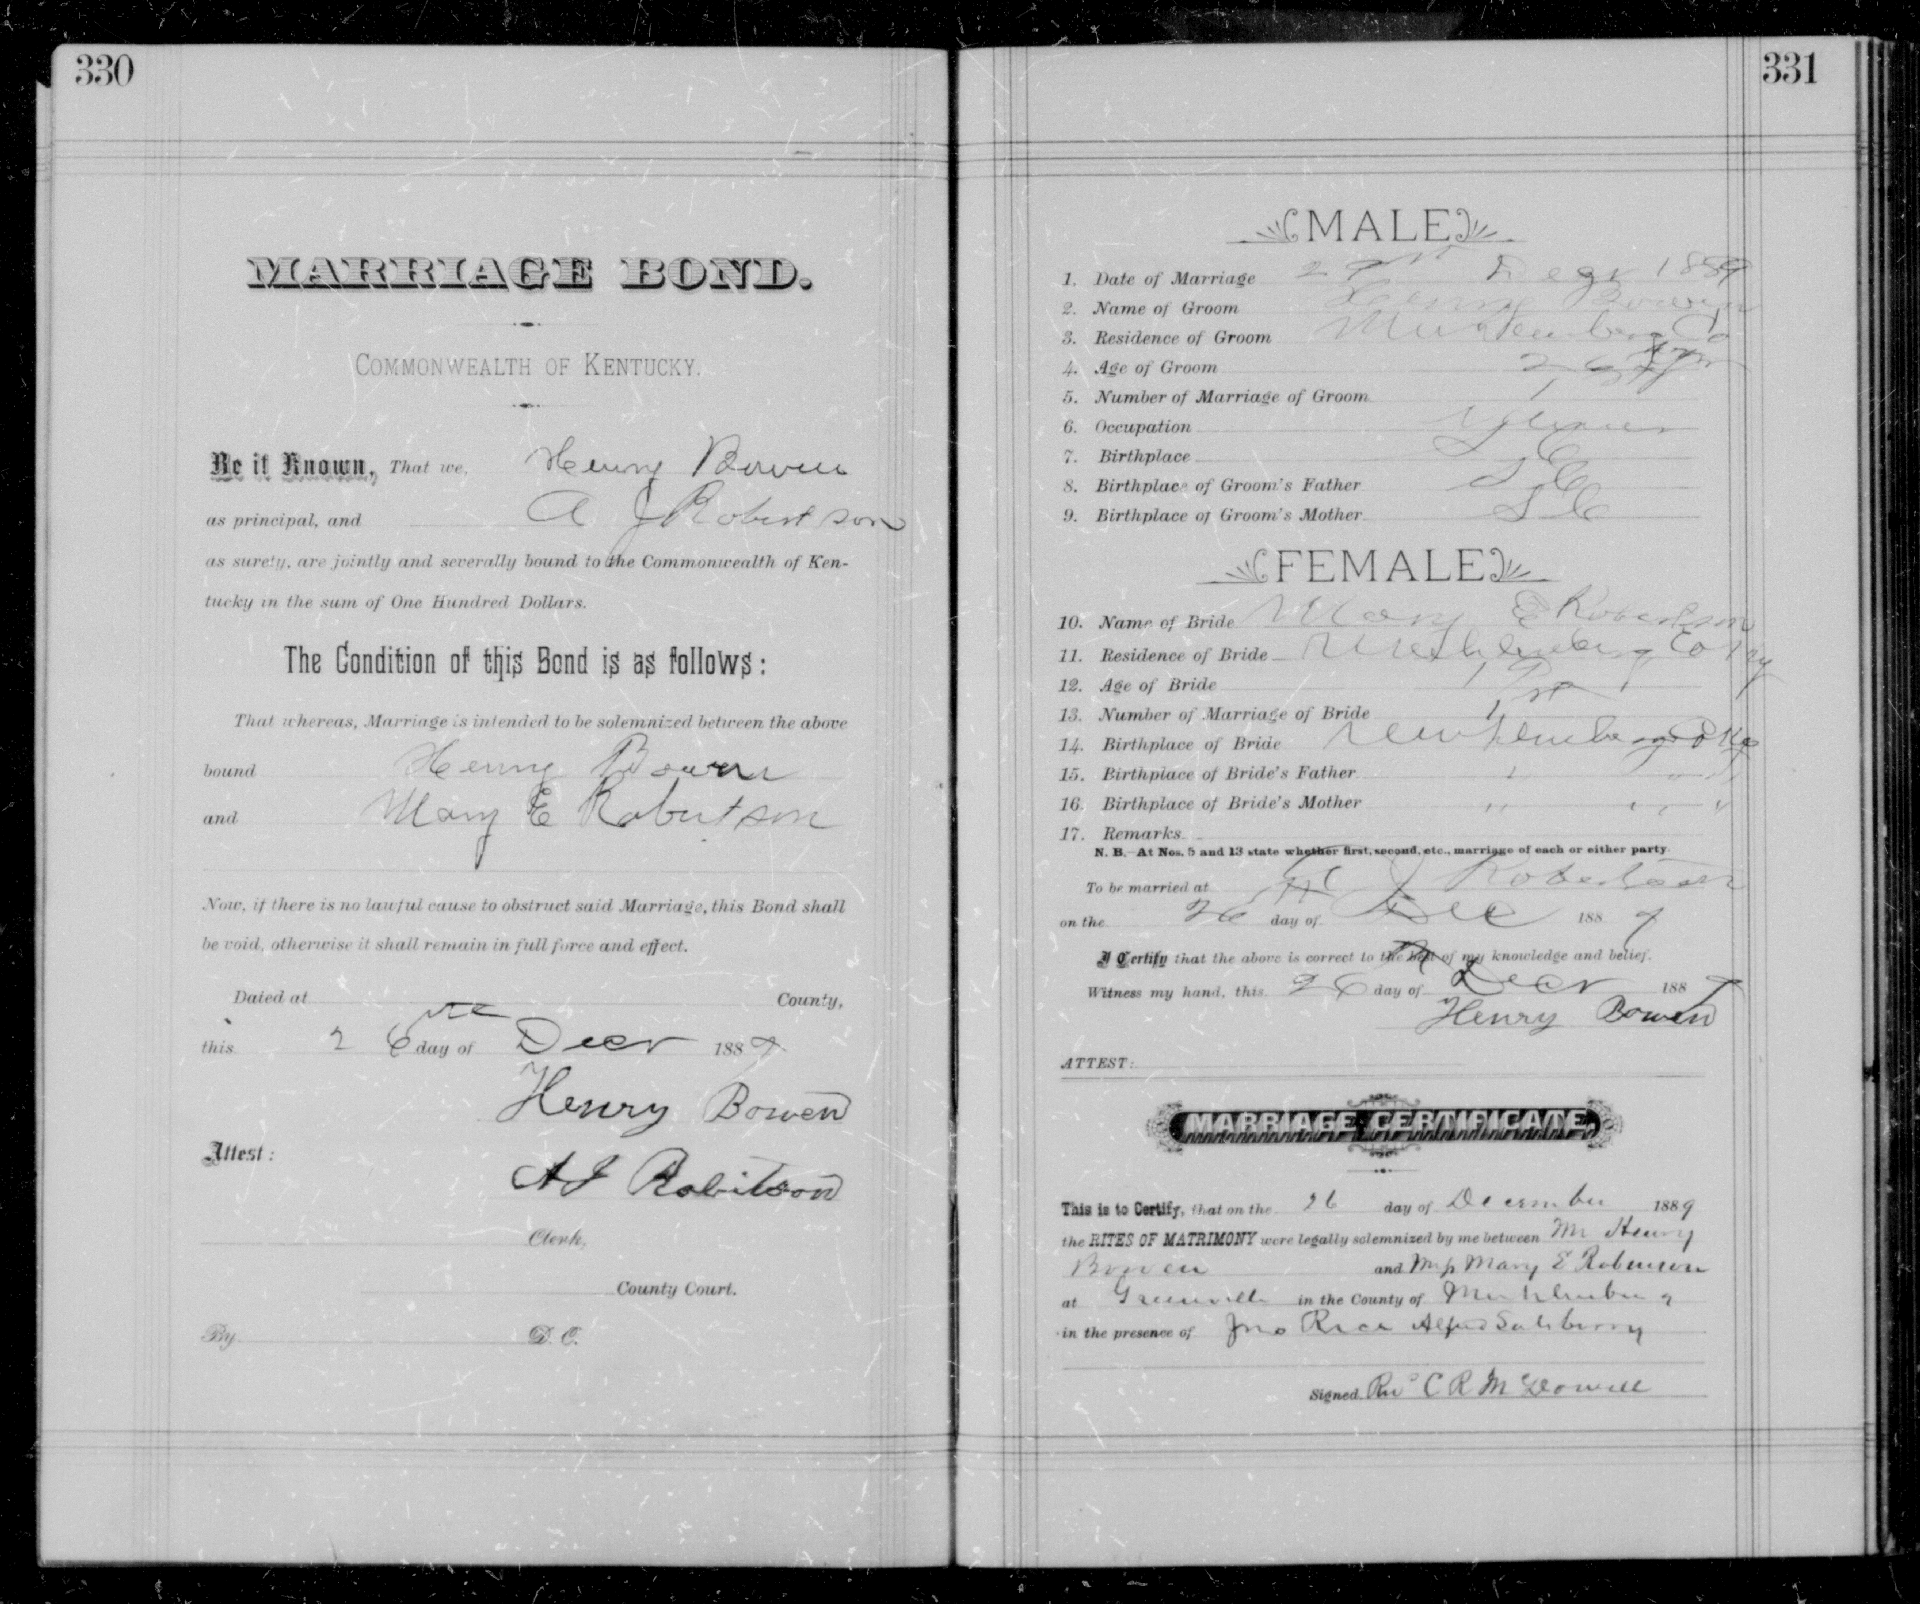 330
MARRIAGE BOND.
COMMONWEALTH OF KENTUCKY.
Be it Known, That we, Henry Bowen
as principal, and A J Robertson
as surety, are jointly and severally bound to the Commonwealth of Ken-
tucky in the sum of One Hundred Dollars.
The Condition of this Bond is as follows:
That whereas, Marriage is intended to be solemnized between the above
bound Henry Bowen
and Mary E Robertson
Now, if there is no lawful cause to obstruct said Marriage, this Bond shall
be void, otherwise it shall remain in full force and effect.
Dated at County,
this 26 day of Decr 1889
Henry Bowen
Attest:
A J Robitson
Clerk,
County Court.
By D. C.
331
MALE
1. Date of Marriage Decr 1889
2. Name of Groom Henry Bowen
3. Residence of Groom Muhlenberg Co
4. Age of Groom 26
5. Number of Marriage of Groom 1
6. Occupation
7. Birthplace
8. Birthplace of Groom's Father
9. Birthplace of Groom's Mother
FEMALE
10. Name of Bride Mary E Robertson
11. Residence of Bride Muhlenberg Co Ky
12. Age of Bride
13. Number of Marriage of Bride 1st
14. Birthplace of Bride Muhlenberg Co Ky
15. Birthplace of Bride's Father " "
16. Birthplace of Bride's Mother " "
17. Remarks
N. B.—At Nos. 5 and 13 state whether first, second, etc., marriage of each or either party.
To be married at J Robertson
on the 26th day of Dec 1889
I Certify that the above is correct to the best of my knowledge and belief.
Witness my hand, this 26 day of Decr 1889
Henry Bowen
ATTEST:
MARRIAGE CERTIFICATE.
This is to Certify, that on the 26 day of December 1889
the RITES OF MATRIMONY were legally solemnized by me between Mr Henry
Bowen and Miss Mary E Robinson
at Greenville in the County of Muhlenberg
in the presence of Jno Rice Alfred Salsberry
Signed. Rev C R McDowell